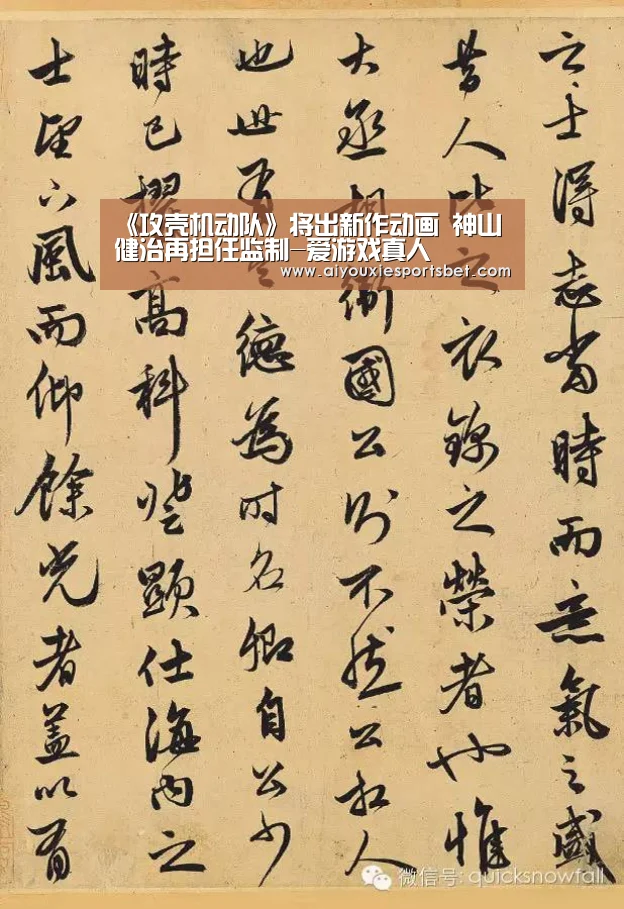 之士得志當時而意氣之盛
昔人比之衣錦之榮者也惟
大丞相衛國公則不然公相人
也世有令德為时名卿自公少
時已擢高科登顯仕海內之
士望下風而仰餘光者蓋以有
《攻壳机动队》将出新作动画 神山
健治再担任监制-爱游戏真人
www.aiyouxiesportsbet.com
微信号: quicksnowfall